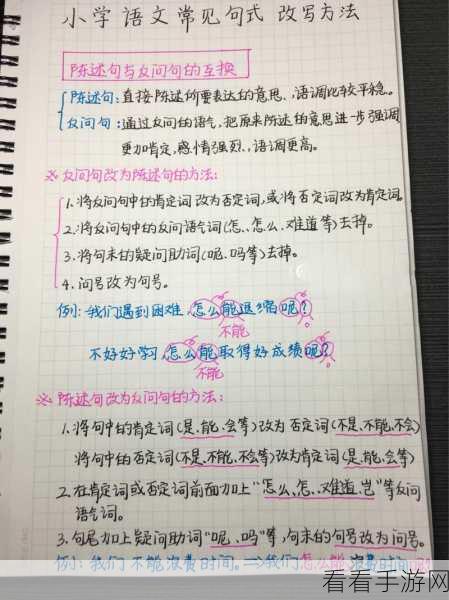 小学语文常见句式 改写方法
陈述句与反问句的互换
陈述句:直接陈述所要表达的意思,语调比较平稳。
反问句:通过反问的语气,把原来陈述的意思进一步强调
更加肯定,感情强烈,语调更高。
※反问句改为陈述句的方法:
1.将反问句中的肯定词改为否定词,或将否定词改为肯定词
2.将反问句中的反问语气词(怎、怎么、难道等)去掉。
3.将句末的疑问助词(呢、吗等)去掉。
4.问号改为句号。
例:我们遇到困难,怎么能退缩呢?
不能
不好好学习,怎么能取得好成绩呢?
不能
※陈述句改为反问句的方法:
1.将句中的肯定词(是、能、会等)改为否定词(不是、不能、不会)
将句中的否定词(不是、不能、不会等)改为肯定词(是、能、会等)
2.在肯定词或否定词前面加上“怎么、怎、难道、岂”等反问
语气词。
3.句尾加上疑问助词“呢、吗”等,句末的句号改为问号。
例:我们不能浪费时间。⇒我们怎么能浪费时间呢?
看看手游网